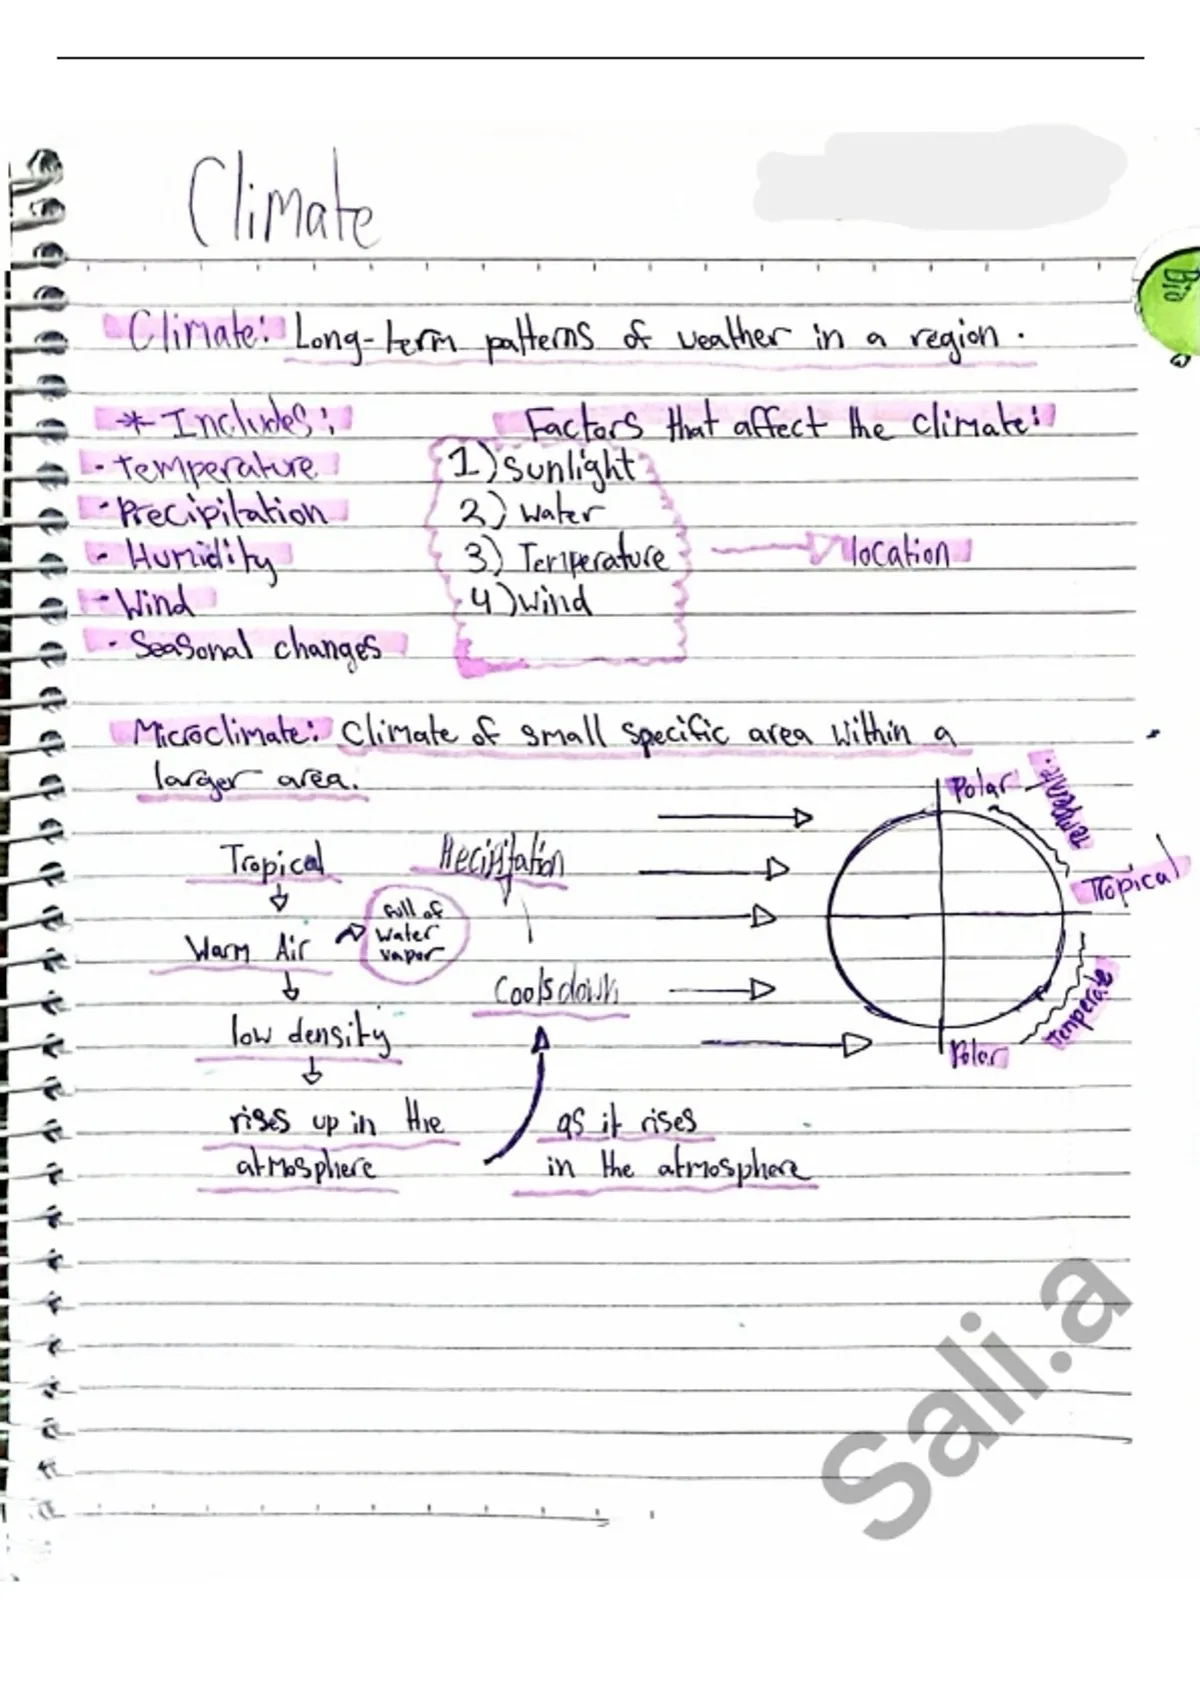 Climate
Bio
Climate: Long-term patterns of weather in a region.
* Includes:
- temperature
- Precipitation
- Humidity
- Wind
- Seasonal changes
Factors that affect the climate:
1) Sunlight
2) water
3) Temperature
4) wind
location
Microclimate: Climate of small specific area within a
larger area.
Tropical
Warm Air
full of
water
vapor
low density
rises up in the
atmosphere
as it rises
in the atmosphere
Cools down
Precipitation
Polar
Temperate
Tropical
Temperate
Polar
Sali.a